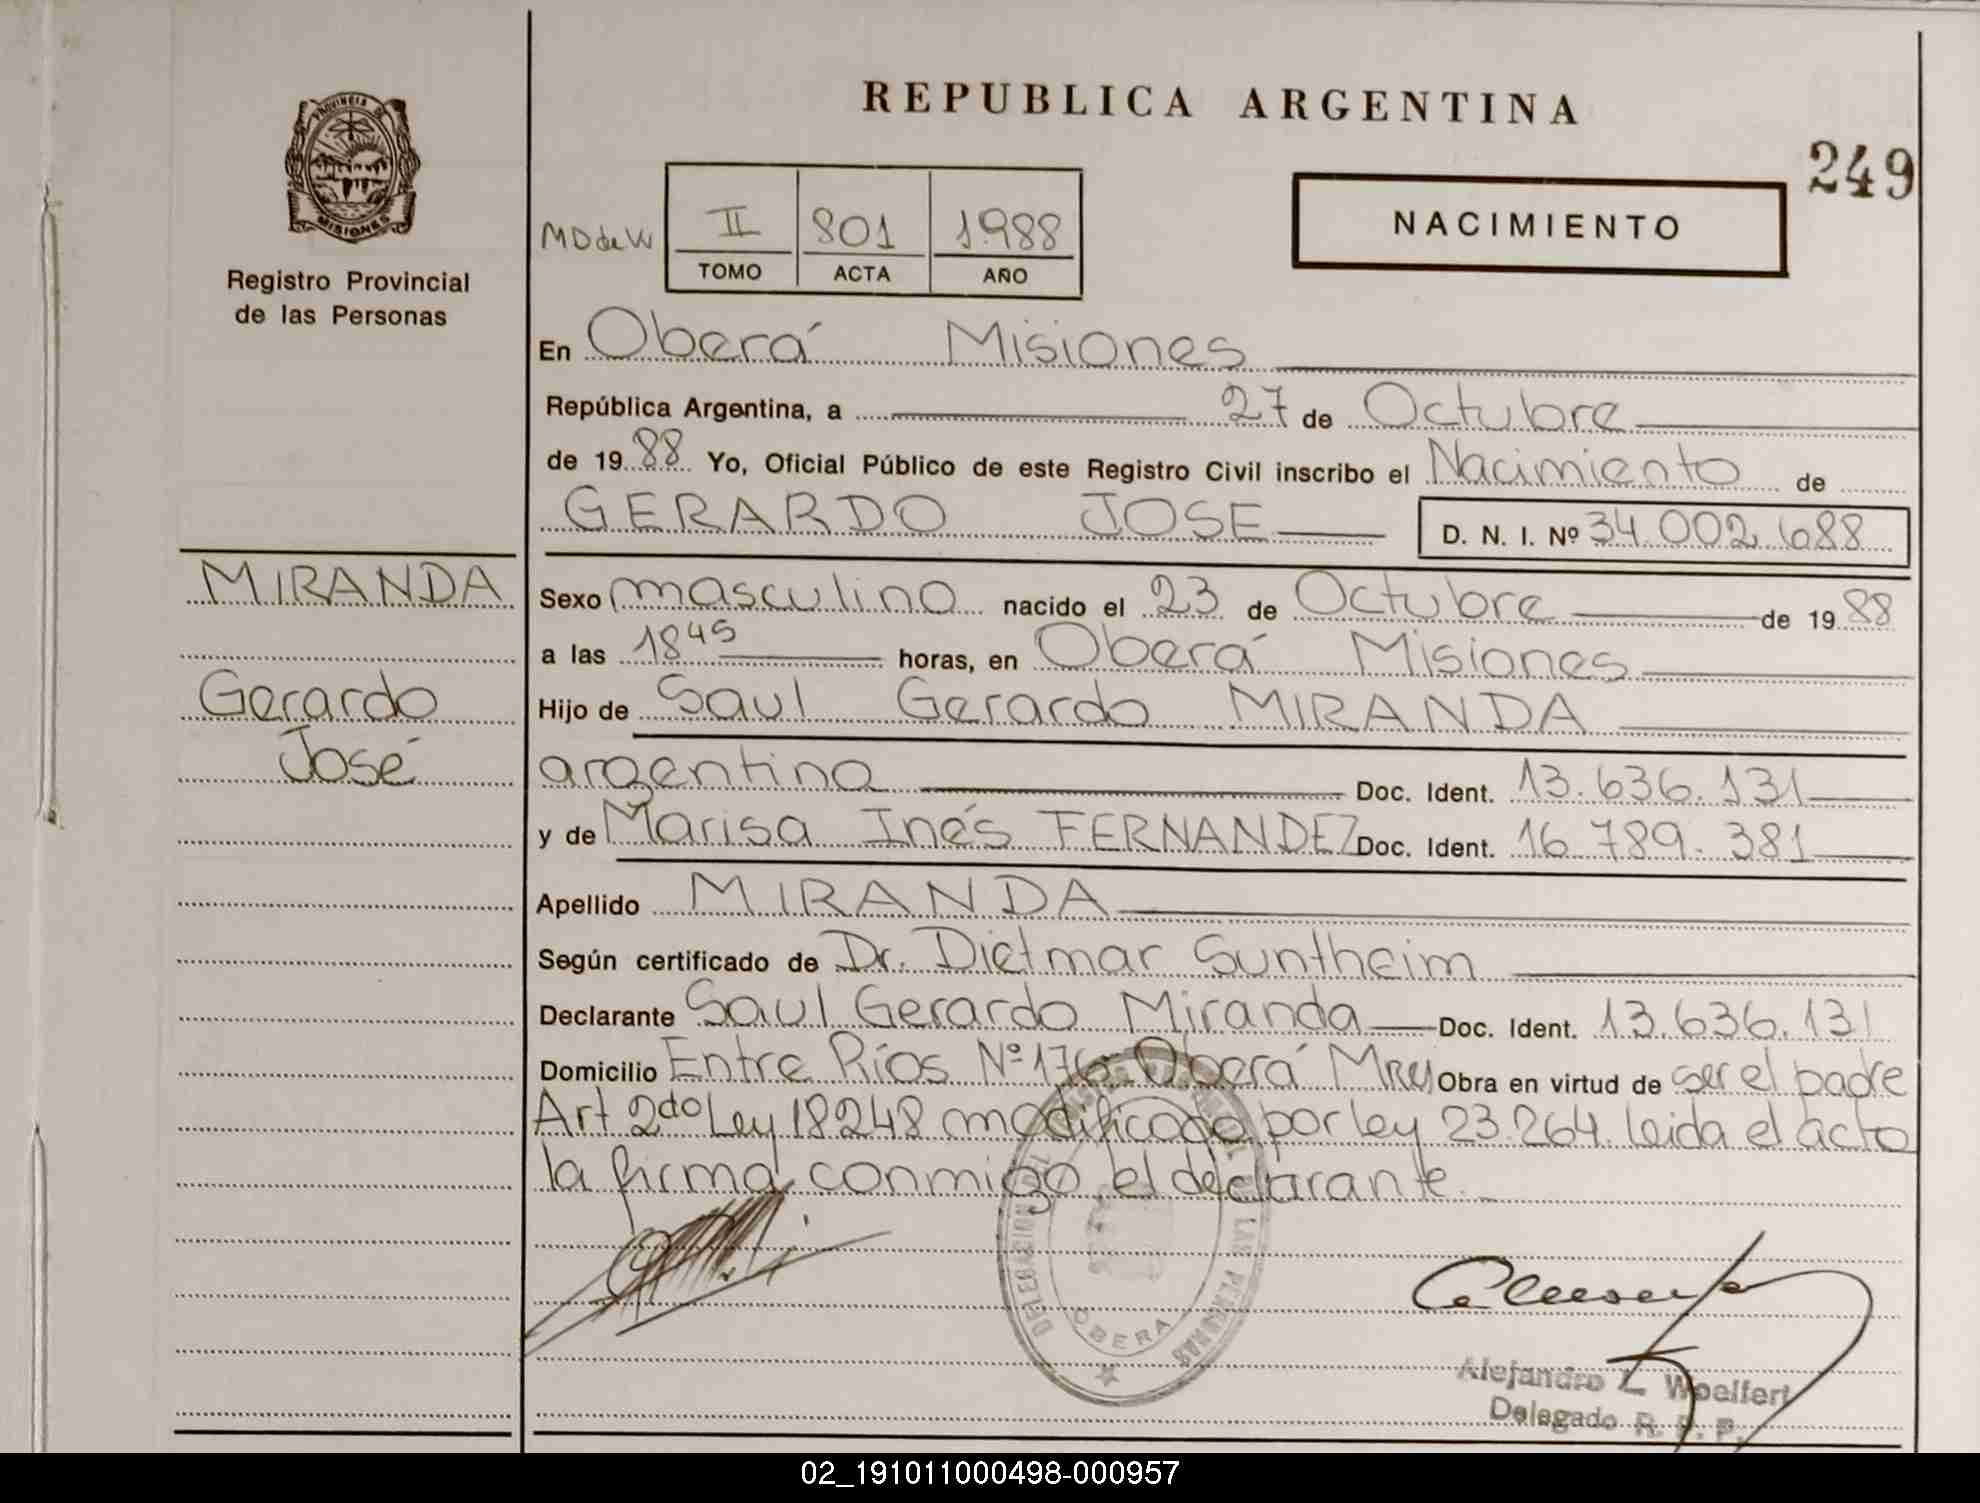 REPUBLICA ARGENTINA
249
PROVINCIA D
MISIONES
Registro Provincial
de las Personas
MD de W
II 801 1.988
TOMO ACTA AÑO
NACIMIENTO
En Oberá Misiones
República Argentina, a 27 de Octubre
de 1988 Yo, Oficial Público de este Registro Civil inscribo el Nacimiento de
GERARDO JOSE D. N. I. Nº 34.002.688
MIRANDA
Gerardo
José
Sexo masculino nacido el 23 de Octubre de 1988
a las 18 45 horas, en Oberá Misiones
Hijo de Saul Gerardo MIRANDA
argentina Doc. Ident. 13.636.131
y de Marisa Inés FERNANDEZ Doc. Ident. 16.789.381
Apellido MIRANDA
Según certificado de Dr. Dietmar Suntheim
Declarante Saul Gerardo Miranda Doc. Ident. 13.636.131
Domicilio Entre Ríos Nº 176 Oberá Obra en virtud de ser el padre
Art 2do Ley 18248 modificada por ley 23.264. leida el acto
la firma conmigo el declarante.
DELEGACION DEL DE LAS PERSONAS
OBERA
Alejandro L. Woelfert
Delegado R. P. P.
02_191011000498-000957